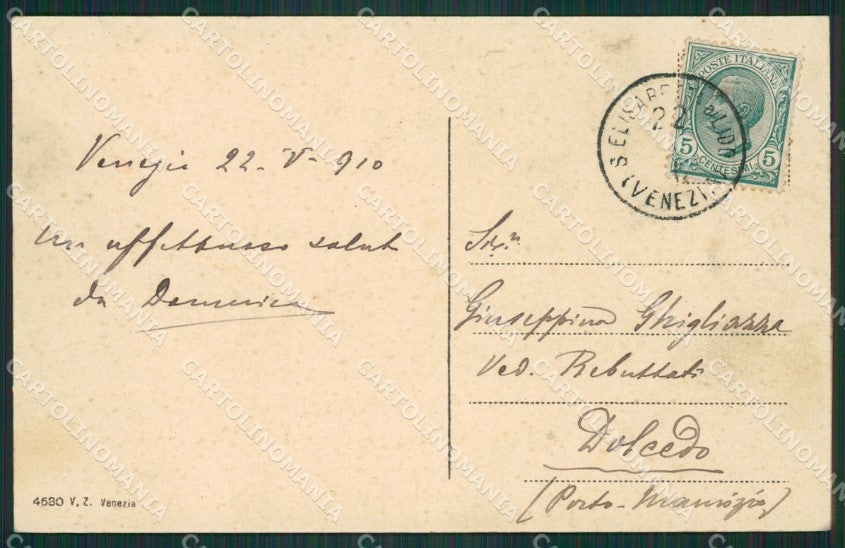 Venezia 22-V-910
Un affettuoso saluto
da Domenica
4680 V. Z. Venezia
POSTE ITALIANE
5 CENTESIMI 5
S. ELISABETTA DI LIDO
22
(VENEZIA)
Giuseppina Ghigliazza
Ved. Rebuttati
Dolcedo
(Porto-Maurizio)
CARTOLINOMANIA